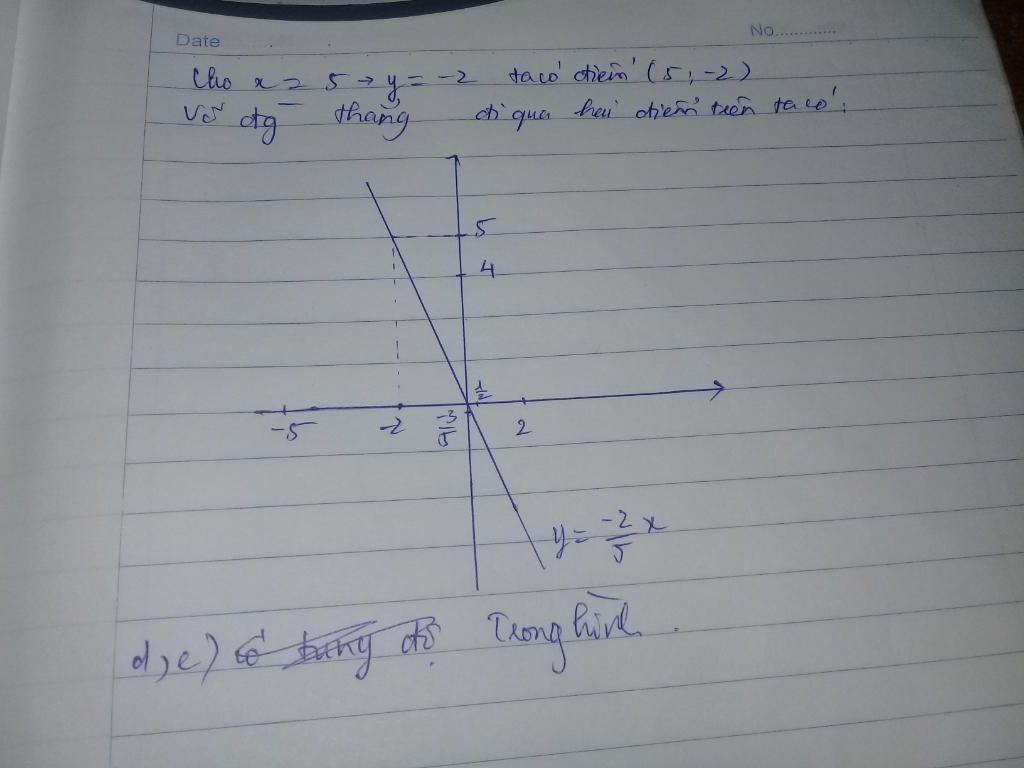 Date No.............
Cho x = 5 → y = -2 ta có điểm (5; -2)
Vẽ đtg thẳng đi qua hai điểm trên ta có:
5
4
1/2
-5 -2 -3/5 2
y = -2/5 x
d, e) có tung độ Trong hình.